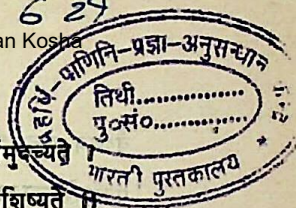 6 24
an Kosha
महर्षि-पाणिनि-प्रज्ञा-अनुसन्धान
तिथी..............
पु०सं०..............
भारती पुस्तकालय
मुदच्यते ।
शिष्यते ॥